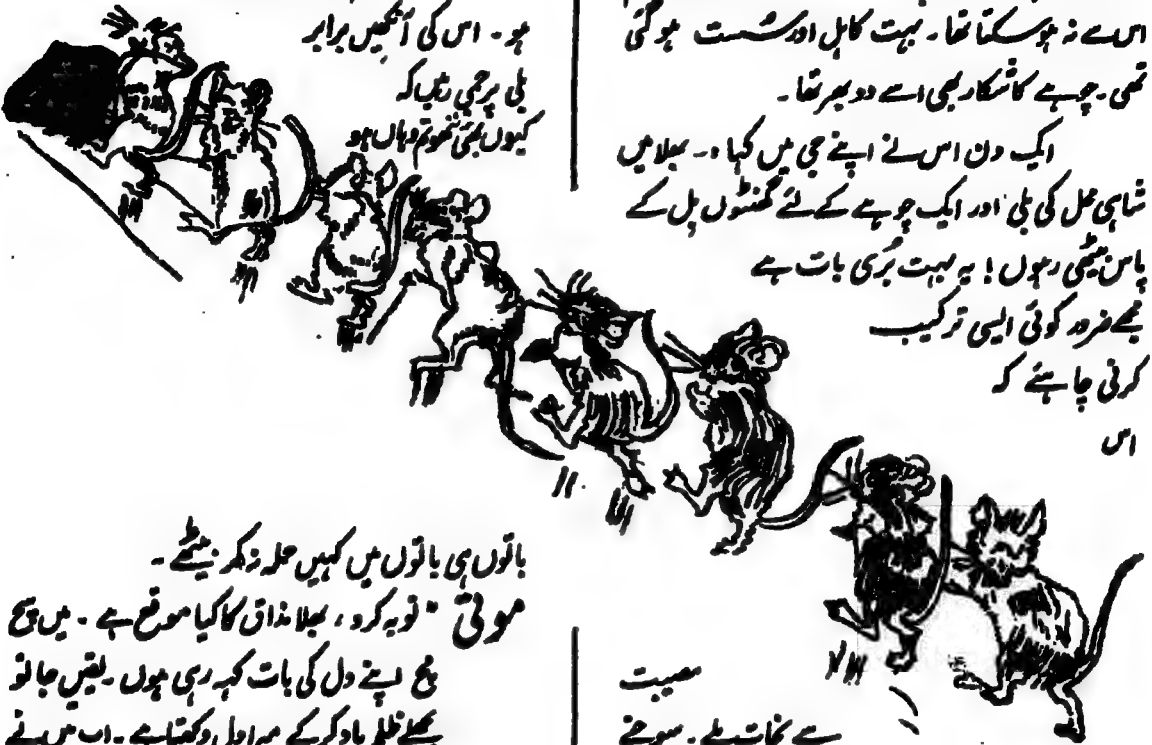 اس سے نہ ہو سکتا تھا۔ بہت کاہل اور سست ہو گئی
تھی۔ چوہے کا شکار بھی اسے دوبھر تھا۔
ایک دن اس نے اپنے جی میں کہا:۔ بھلا میں
شاہی محل کی بلی اور ایک چوہے کے لئے گھنٹوں بل کے
پاس بیٹھی رہوں! یہ بہت بُری بات ہے
مجھے ضرور کوئی ایسی ترکیب
کرنی چاہئے کہ
اس
مصیبت
سے نجات ملے۔ سوچتے
ہو۔ اس کی آنکھیں برابر
بلی پر جمی رہیں کہ
کیوں بھئی نتھو تم وہاں ہو
باتوں ہی باتوں میں کہیں حملہ نہ کر بیٹھے۔
موٹی "توبہ کرو، بھلا مذاق کا کیا موقع ہے۔ میں سچ
مچ اپنے دل کی بات کہہ رہی ہوں۔ یقین جانو
پچھلے ظلم یاد کر کے میرا دل دکھتا ہے۔ اب میں نے